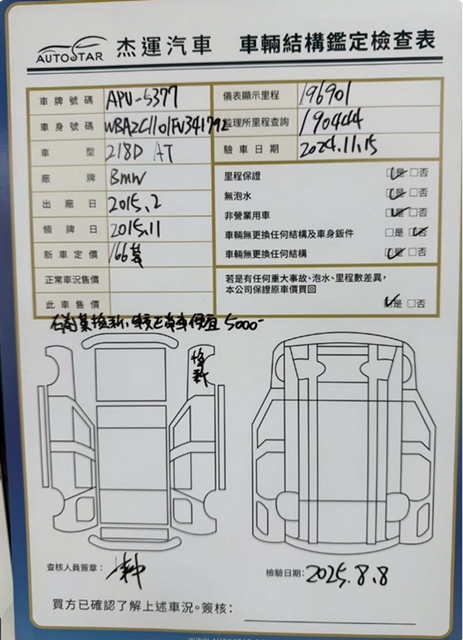 AUTOSTAR 杰運汽車 車輛結構鑑定檢查表
車牌號碼 APU-5377 儀表顯示里程 196901
車身號碼 WBA2C1101FV341792 監理所里程查詢 190444
車型 218D AT 驗車日期 2024.11.15
廠牌 BMW 里程保證 是 否
無泡水 是 否
出廠日 2015.2 非營業用車 是 否
領牌日 2015.11 車輛無更換任何結構及車身鈑件 是 否
新車定價 166萬 車輛無更換任何結構 是 否
正常車況售價 若是有任何重大事故、泡水、里程數差異,
本公司保證原車價買回
此車售價 是 否
5000-
換新
查核人員簽章:
檢驗日期: 2025.8.8
買方已確認了解上述車況。簽核: